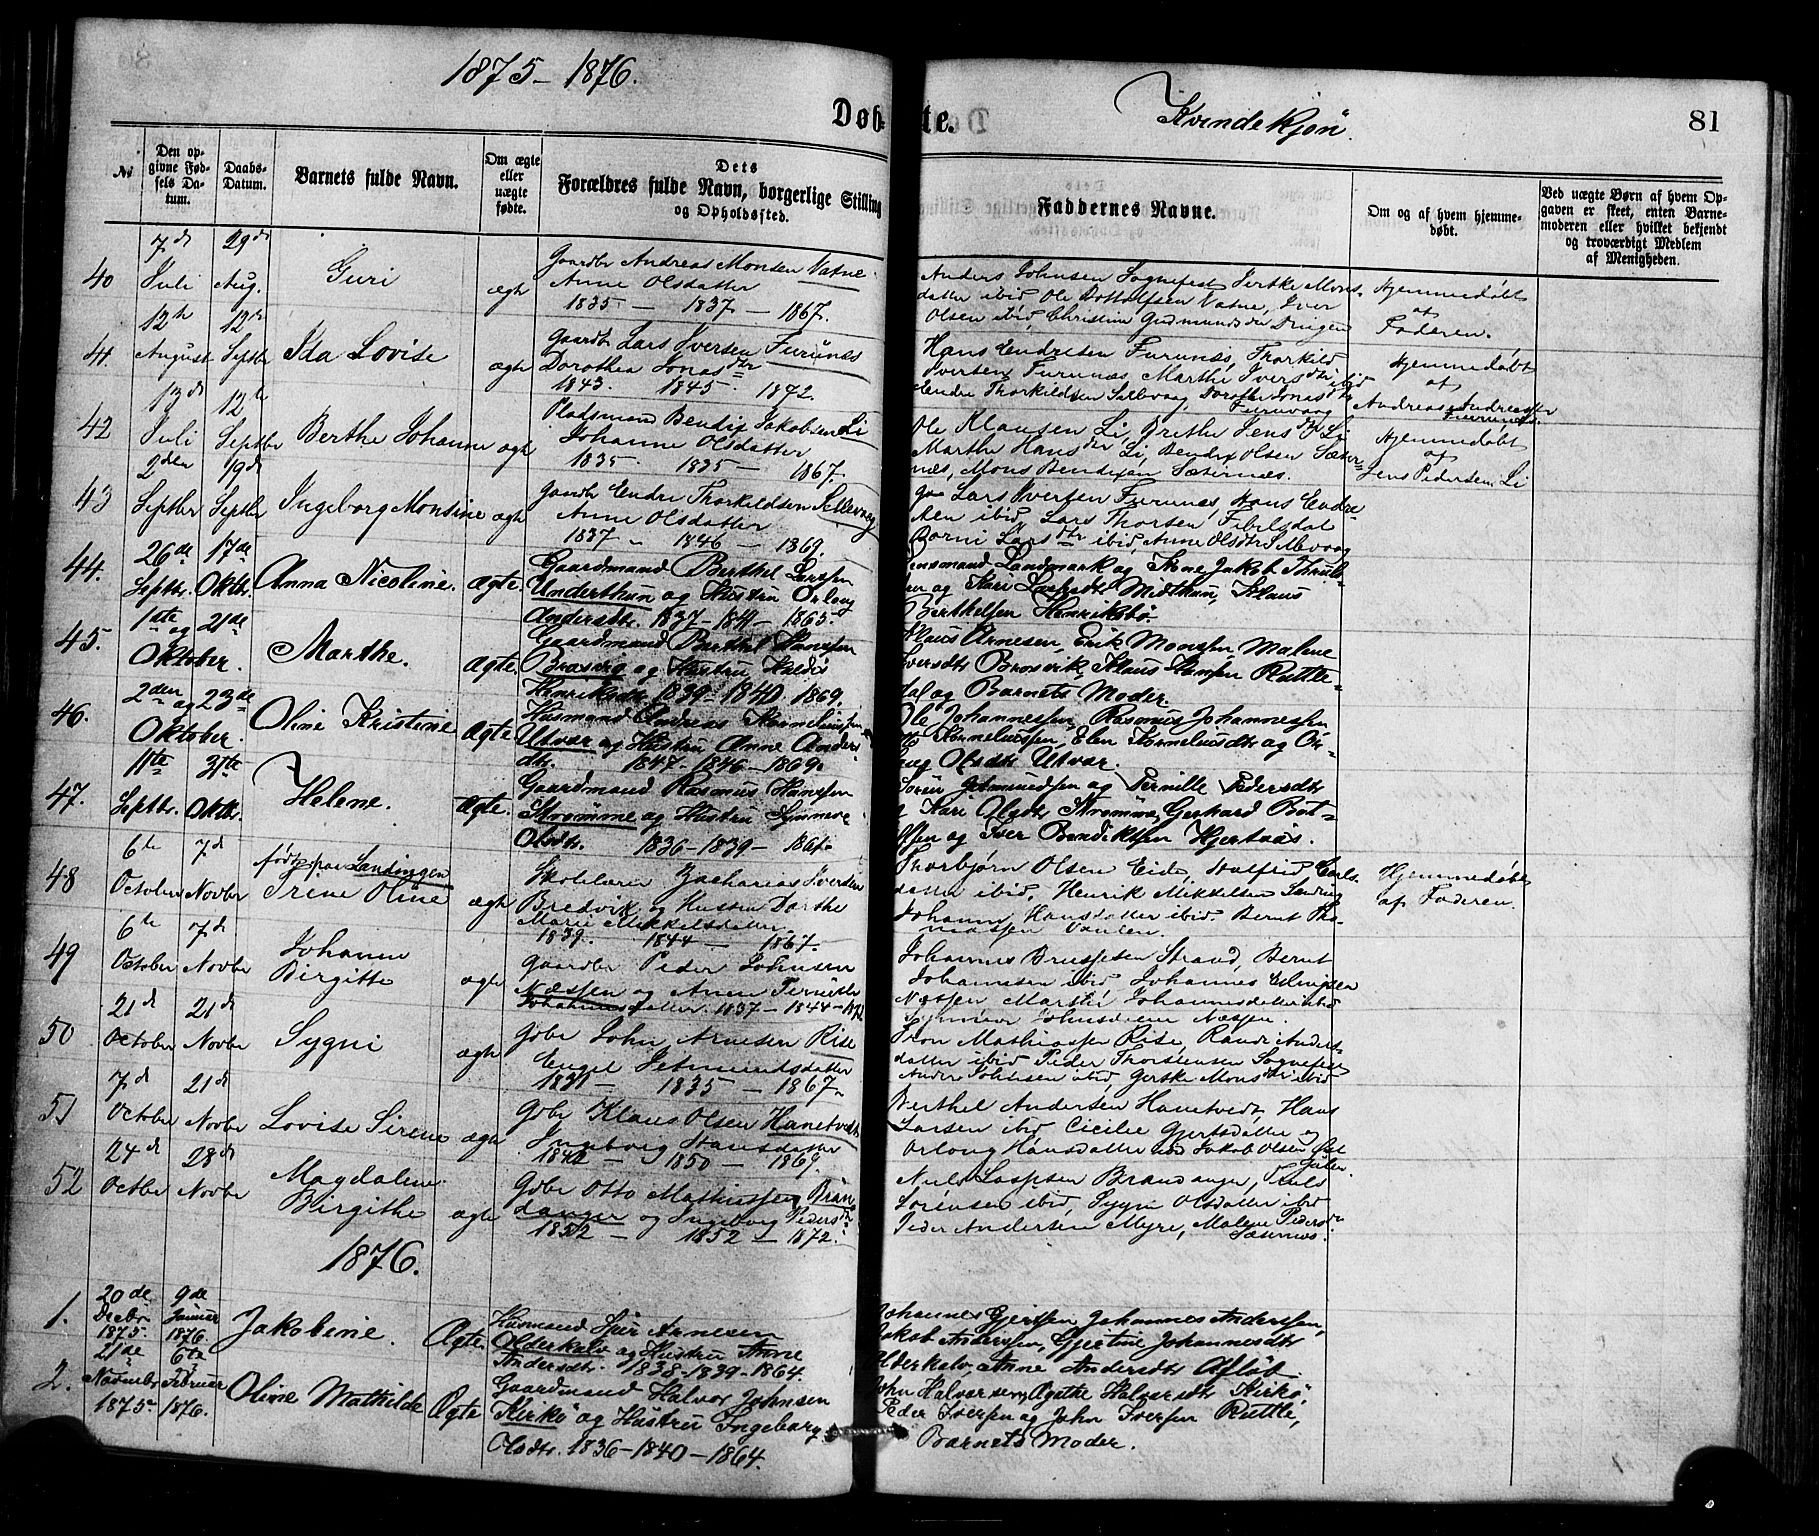 1875–1876.
Døbte.
Kvindekjøn
81
No
Den opgivne Fødsels Datum.
Daabs-Datum.
Barnets fulde Navn.
Om ægte eller uægte fødte.
Dets Forældres fulde Navn, borgerlige Stilling og Opholdssted.
Faddernes Navne.
Om og af hvem hjemmedøbt.
Ved uægte Børn af hvem Opgaven er skeet, enten Barnemoderen eller hvilket bekjendt og troværdigt Medlem af Menigheden.
40 7d Juli 29d Aug. Guri ægte
Gaardbr Andreas Monsen Vatne
Anne Olsdatter
1835 — 1837 — 1867.
Anders Johnsen Sognefest Gertke Mons-
datter ibid Ole Vatne, Iver
Olsen ibid, Christine Gudmundsdtr Dingen
Hjemmedøbt
af
Faderen.
41. 12te August 12te Septbr Ida Lovise ægte
Gaardbr Lars Iversen Furunæs
Dorothea Jonasdtr
1843. 1845. 1872.
Hans Endresen Furunæs, Thorkild
Iversen Furunæs, Marthe Iversdtr ibid
Endre Thorkildsen Sellevaag, Dorothe Jonasdtr
Furuvaag
Hjemmedøbt
af
Andreas Andreassen
Furunæs.
42 13d Juli 12te Septbr Berthe Johanne ægte
Pladsmand Bendix Jakobsen Li
Johanne Olsdatter
1835. 1835 — 1867.
Ole Klausen Li, Brithe Jensdtr Li
Marthe Hansdtr Li, Bendix Olsen Sæter-
næs, Mons Bendixsen Sæternæs.
Hjemmedøbt
af
Jens Pedersen Li
43 2den Septbr 19d Septbr Ingeborg Monsine ægte
Gaardbr Endre Thorkildsen Sellevaag
Anne Olsdatter
1837 — 1846 — 1869.
Lars Iversen Furunæs, Hans Endre-
sen ibid, Lars Thorsen
Larsdtr ibid, Anne Olsdtr Sellevaag
44. 26de Septbr. 17de Oktbr. Anna Nicoline. Ægte.
Gaardmand Berthel Larssen
Underthun og Hustru Orlong
Andersdtr. 1837–1841–1865.
Landmark og Arne Jakob
og Kari Midthun, Klaus
Berthelsen Henriksbø.
45. 1ste og Oktober. 21de Marthe. Ægte.
Gaardmand Berthel Hanssen
Brosvig og Hustru
Henriksdtr 1839–1840, 1869.
Klaus Arnesen, Erik Monssen Malene
Iversdtr Brosvik, Klaus Hansen Rutle-
dal og Barnets Moder.
46. 2den og 23de Oktober. Oline Kristine Ægte.
Husmand Andreas Korneliussen
Utvær og Hustru Anne Anders-
dtr. 1847–1846–1869.
Ole Johannessen, Rasmus Johannessen
Korneliussen, Elen Korneliusdtr og Or-
long Olsdtr Utvær.
47. 11te Septbr. 31te Oktbr. Helene. Ægte.
Gaardmand Rasmus Hanssen
Strømme og Hustru Synneve
Olsdtr. 1836–1839–186
Sören Jetmundsen og Pernille Pedersdtr
og Kari Olsdtr Strömme, Gerhard Bot-
og Iver Bendiktsen Hjertnæs.
48 6te October 7d Novbr født paa Landingen
Irene Oline ægte
Skolelærer Zacharias Iversen
Bredvik og Hustru Dorthe
Marie Mikkelsdatter.
1839. 1844 — 1867.
Thorbjørn Olsen Eide, Carls-
datter ibid, Henrik Mikkelsen Landing
Johanne Hansdatter ibid Bernt Tho-
massen
Hjemmedøbt
af Faderen.
49 6te October 7d Novbr Johanne
Birgitte ægte
Gaardbr Peder Johnsen
Næssen og Anne Pernille
Johannesdatter. 1837 — 1844 — 1872
Johannes Strand, Bernt
Johannesen ibid, Johannes Elingsen
Næssen Marthe Johannesdatter ibid
Synneve Johnsdatter Næssen.
50 21d October 21d Novbr Sygni ægte
Gdbr John Arnesen Rise
Engel Jetmundsdatter
1831 — 1835 — 1867.
Mathiassen Rise, Anders-
datter ibid Peder Thorstensen Sognefest
Anders Johnsen ibid, Gertke Monsdtr ibid
51 7d October 21d Novbr Lovise Sirene ægte
Gdbr Klaus Olsen Hanetvedt
Ingeborg Hansdatter
1842 — 1850 — 1869.
Berthel Andersen Hanetvedt, Hans
Larsen ibid Cicilie Gjertsdatter og
Orlong Hansdatter ibid Jakob Olsen Øst
Gulen
52 24d Octbr 28d Novbr Magdalene
Birgithe ægte
Gdbr Otto Mathiassen Bran-
danger og Ingeborg Pedersdtr
1852 — 1852 — 1872.
Niels Lassesen Brandanger,
Sörensen ibid, Sygni Olsdatter ibid
Peder Andersen Myre, Malene Pedersdtr
Sæternæs.
1876.
1. 20de Decbr 1875. 9de Januar 1876. Jakobine. Ægte
Husmand Arnesen
Olderkalv og Hustru Anne
Andersdtr. 1838–1839–1864.
Johannes Gjertsen, Johannes Anderssen,
Jakob Anderssen, Gjertine Johannesdtr
Olderkalv, Anne Andersdtr
2. 21de Novembr 1875. 6te Februar 1876. Oline Mathilde Ægte
Gaardmand Halvor Johnsen
Kirkö og Hustru Ingeborg
Olsdtr. 1836–1840–1864.
John Halvorsen, Agathe Halvorsdtr Kirkö
Peder Iversen og John Iversen Rutle,
Barnets Moder.